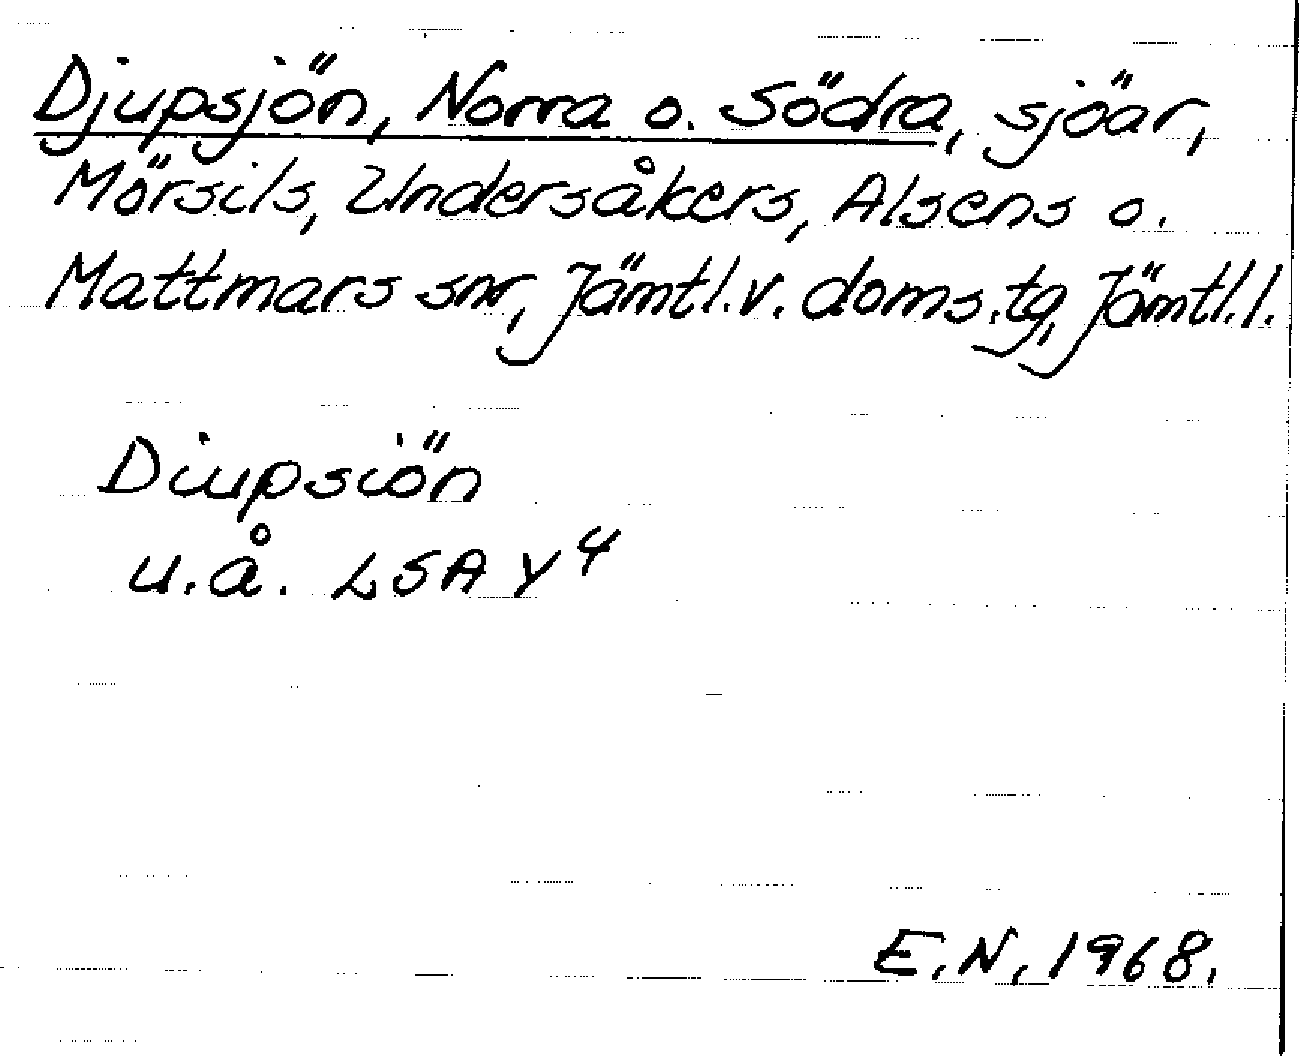 Djupsjön, Norra o. Södra, sjöar,
Mörsils, Undersåkers, Alsens o.
Mattmars snr, Jämtl. v. doms.tg, Jämtl. l.
Diupsiön
u.å. LSA Y4
E.N. 1968.